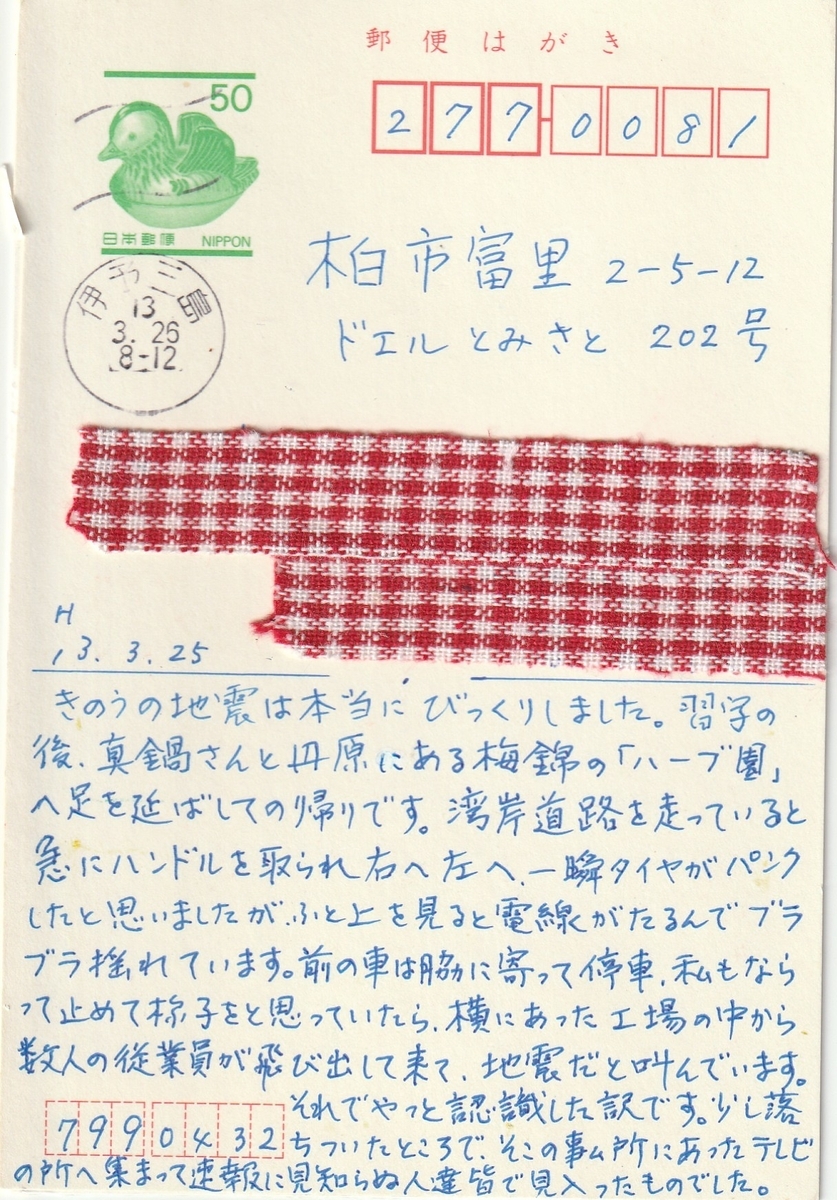 郵便はがき
50
日本郵便 NIPPON
277-0081
伊予三島
13
3.26
8-12
柏市富里 2-5-12
ドエルとみさと 202号
H
13.3.25
きのうの地震は本当にびっくりしました。習字の
後、真鍋さんと丹原にある梅錦の「ハーブ園」
へ足を延ばしての帰りです。湾岸道路を走っていると
急にハンドルを取られ右へ左へ、一瞬タイヤがパンク
したと思いましたが、ふと上を見ると電線がたるんでブラ
ブラ揺れています。前の車は脇に寄って停車、私もなら
って止めて様子をと思っていたら、横にあった工場の中から
数人の従業員が飛び出して来て、地震だと叫んでいます。
それでやっと認識した訳です。少し落
ちついたところで、そこの事ム所にあったテレビ
の所へ集まって速報に見知らぬ人達皆で見入ったものでした。
7990432